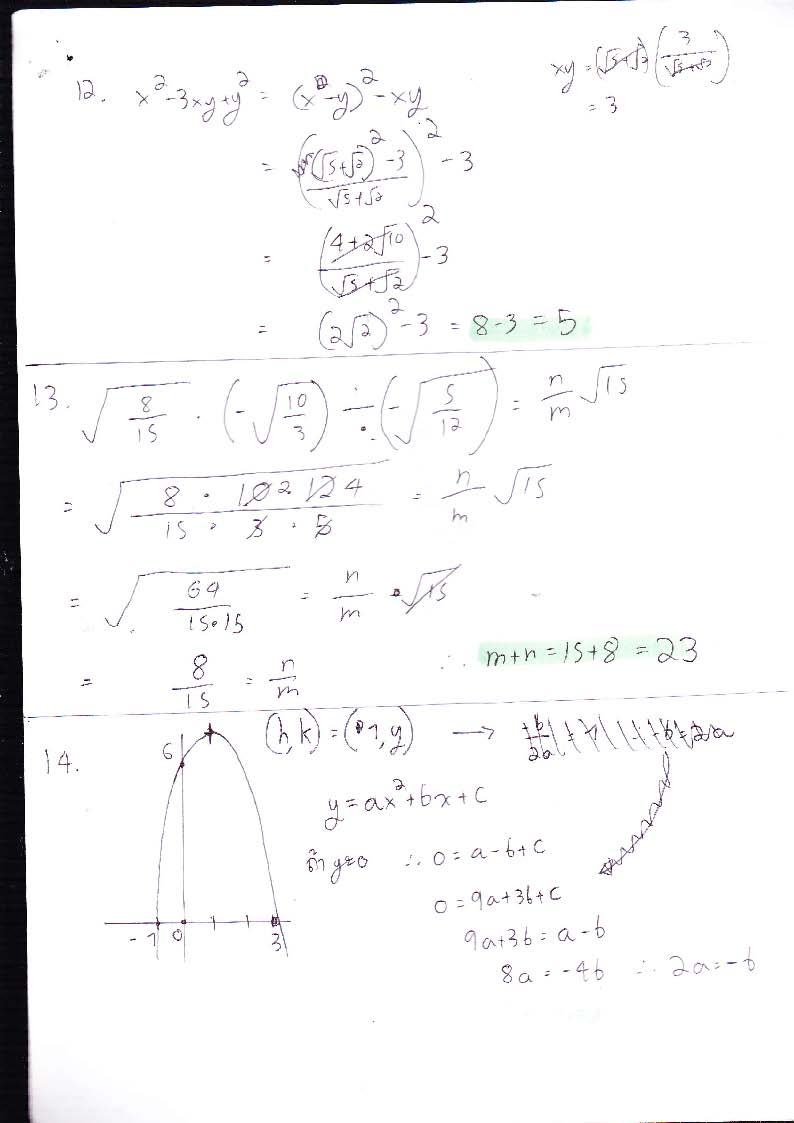 12. x² - 3xy + y² = (x - y)² - xy
xy = (√5+√2)(3/(√5+√2))
= 3
= (((√5+√2)² - 3)/(√5+√2))² - 3
= ((4+2√10)/(√5+√2))² - 3
= (2√2)² - 3 = 8-3 = 5
13. √(8/15) · (-√(10/3)) ÷ (-√(5/12)) = n/m √15
= √((8 · 10 2 12 4)/(15 · 3 · 5)) = n/m √15
= √(64/(15·15)) = n/m · √15
= 8/15 = n/m ∴ m+n = 15+8 = 23
14. 6 (h,k) = (1,y) →
y = ax² + bx + c
ถ้า y=0 ∴ 0 = a-b+c
0 = 9a+3b+c
-1 0 3
9a+3b = a-b
8a = -4b ∴ 2a = -b